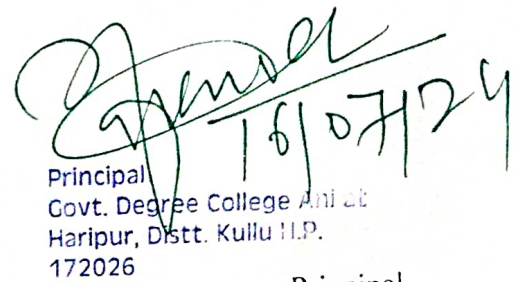 16/07/24
Principal
Govt. Degree College Ani at
Haripur, Distt. Kullu H.P.
172026
Principal